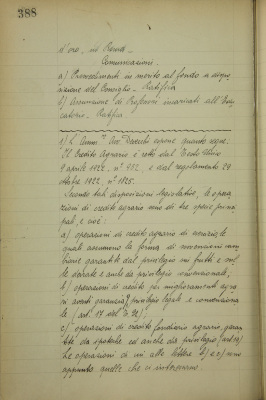 388
d'oro, in Roma.
Comunicazioni.
a) Provvedimenti in merito al fondo a dispo
sizione del Consiglio - Ratifica
b) Assunzione di Professori incaricati all'
Ratifica
quanto segue:
"Il Credito Agrario è retto dal Testo Unico
9 aprile 1922, n° 932, e dal regolamento 29
ottobre 1922, n° 1825.
Secondo tali disposizioni legislative, le opera
zioni di credito agrario sono di tre specie princi
pali, e cioè:
a) operazioni di credito agrario di esercizio, le
quali assumono la forma di sovvenzioni cam
biarie garantite dal privilegio sui frutti e sul
le derrate e anche da privilegio convenzionale;
b) operazioni di credito pei miglioramenti agra
ri aventi garanzia privilegio legale e convenziona
le (art. 17 del T.U.);
c) operazioni di credito fondiario agrario, garan
tite da ipoteche ed anche da privilegio
Le operazioni di cui alle lettere b) e c) sono
appunto quelle che ci interessano.